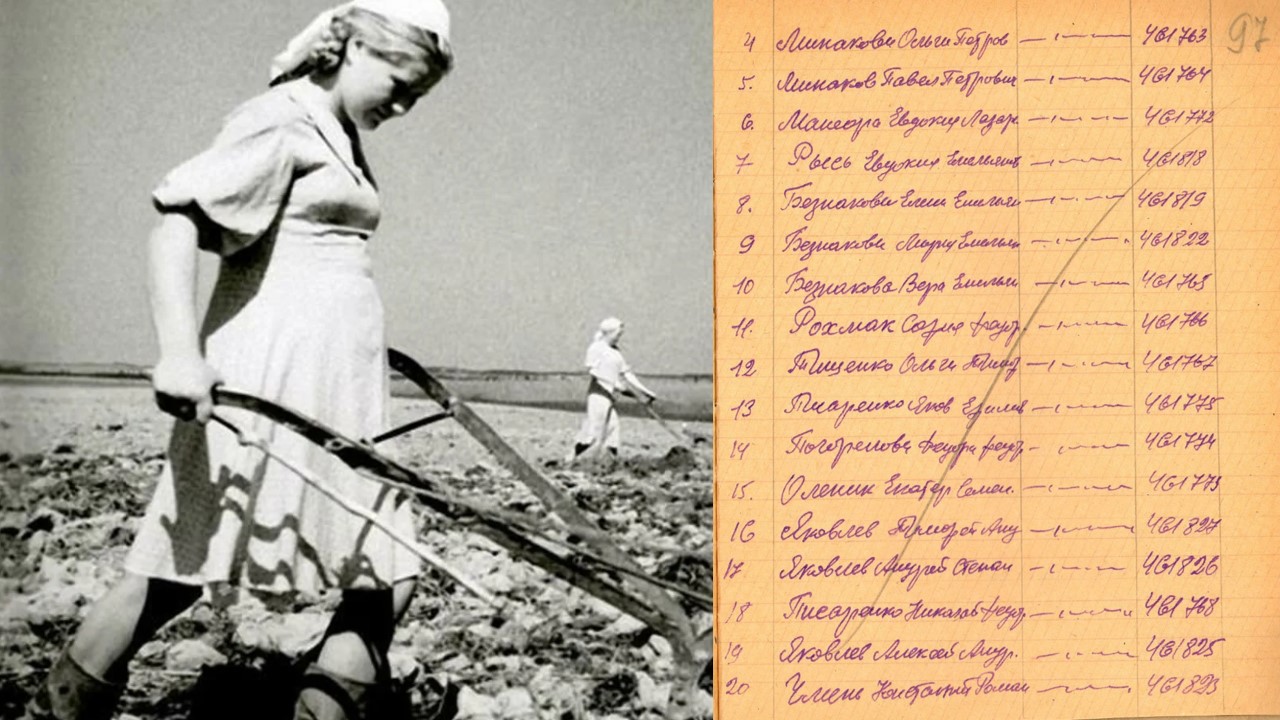 97
4 Минакова Ольга Петров 461763
5. Минаков Павел Петрович 461764
6. Евдокия Лазар 461772
7 Рыссь Евдокия Емельян 461818
8. Безнакова Елена Емельян 461819
9 Безнакова Мария Емельян 461822
10 Безнакова Вера Емельян 461765
11. Рохмак София Федор. 461766
12 Тищенко Ольга 461767
13 Писаренко Яков 461775
14 Федора Федор 461774
15. Оленик Екатер Семен. 461773
16 Яковлев Андр 461827
17 Яковлев Андрей Степан 461826
18 Писаренко Николай Федор 461768
19 Яковлев Алексей Андр. 461825
20 Роман 461823